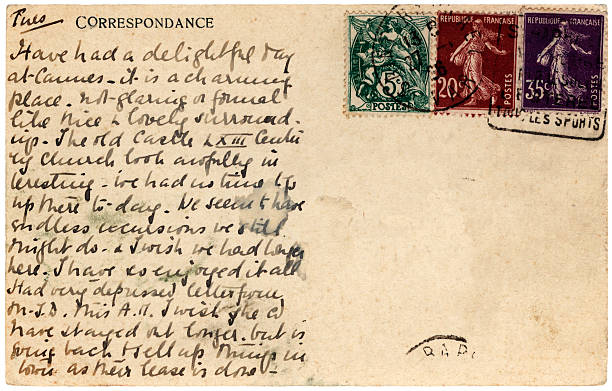 Tues
CORRESPONDANCE
RÉPUBLIQUE FRANÇAISE
RÉPUBLIQUE FRANÇAISE
5
20c
35c
POSTES
POSTES
POSTES
LES SPORTS
Have had a delightful day
at Cannes - it is a charming
place. not glaring or formal
like Nice & lovely surround-
ings. The old Castle & XIII Centu
ry Church look awfully in
teresting - We had no time to go
up there to-day. We seem to have
endless excursions we still
might do - & I wish we had longer
here. I have so enjoyed it all
Had very depressed letter from
this A.M. I wish she cd
have stayed out longer. but is
going back to sell up things in
town as their lease is done -
PAR